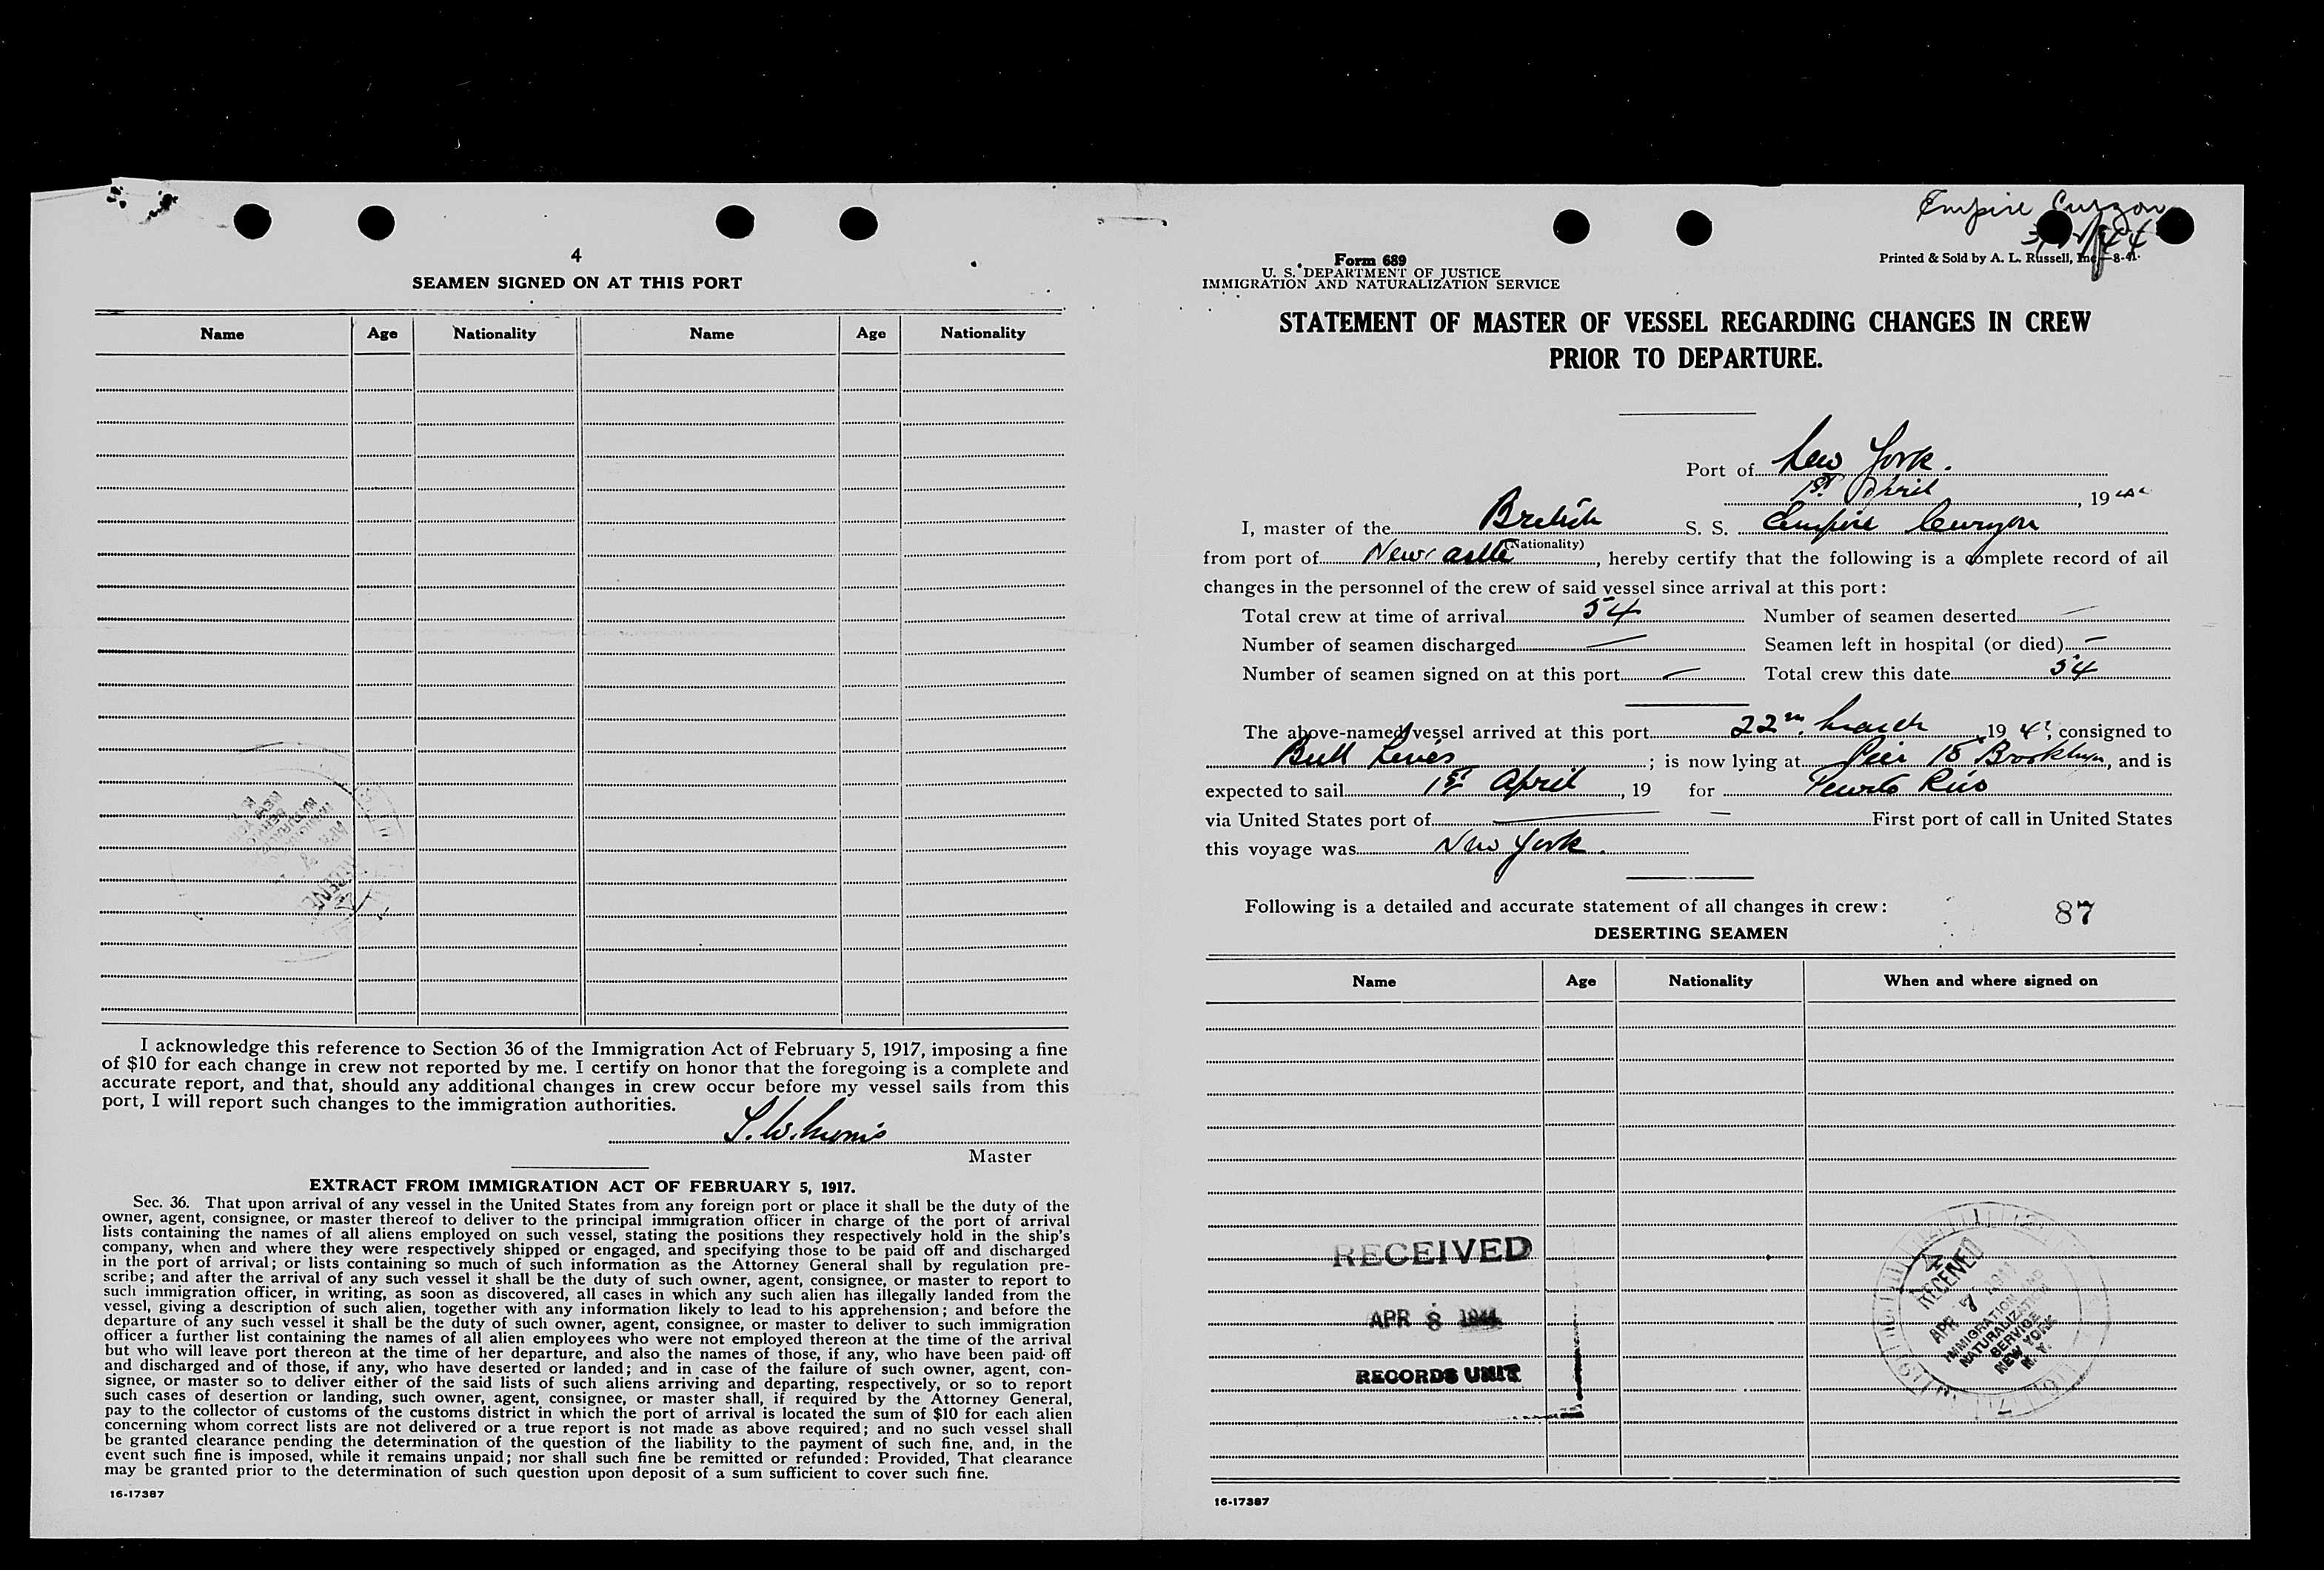 4
SEAMEN SIGNED ON AT THIS PORT
Name Age Nationality Name Age Nationality
I acknowledge this reference to Section 36 of the Immigration Act of February 5, 1917, imposing a fine
of $10 for each change in crew not reported by me. I certify on honor that the foregoing is a complete and
accurate report, and that, should any additional changes in crew occur before my vessel sails from this
port, I will report such changes to the immigration authorities.
Master
EXTRACT FROM IMMIGRATION ACT OF FEBRUARY 5, 1917.
Sec. 36. That upon arrival of any vessel in the United States from any foreign port or place it shall be the duty of the
owner, agent, consignee, or master thereof to deliver to the principal immigration officer in charge of the port of arrival
lists containing the names of all aliens employed on such vessel, stating the positions they respectively hold in the ship's
company, when and where they were respectively shipped or engaged, and specifying those to be paid off and discharged
in the port of arrival; or lists containing so much of such information as the Attorney General shall by regulation pre-
scribe; and after the arrival of any such vessel it shall be the duty of such owner, agent, consignee, or master to report to
such immigration officer, in writing, as soon as discovered, all cases in which any such alien has illegally landed from the
vessel, giving a description of such alien, together with any information likely to lead to his apprehension; and before the
departure of any such vessel it shall be the duty of such owner, agent, consignee, or master to deliver to such immigration
officer a further list containing the names of all alien employees who were not employed thereon at the time of the arrival
but who will leave port thereon at the time of her departure, and also the names of those, if any, who have been paid off
and discharged and of those, if any, who have deserted or landed; and in case of the failure of such owner, agent, con-
signee, or master so to deliver either of the said lists of such aliens arriving and departing, respectively, or so to report
such cases of desertion or landing, such owner, agent, consignee, or master shall, if required by the Attorney General,
pay to the collector of customs of the customs district in which the port of arrival is located the sum of $10 for each alien
concerning whom correct lists are not delivered or a true report is not made as above required; and no such vessel shall
be granted clearance pending the determination of the question of the liability to the payment of such fine, and, in the
event such fine is imposed, while it remains unpaid; nor shall such fine be remitted or refunded: Provided, That clearance
may be granted prior to the determination of such question upon deposit of a sum sufficient to cover such fine.
16-17387
Empire Curzon
Form 689
U. S. DEPARTMENT OF JUSTICE
IMMIGRATION AND NATURALIZATION SERVICE
Printed & Sold by A. L. Russell, Inc.
STATEMENT OF MASTER OF VESSEL REGARDING CHANGES IN CREW
PRIOR TO DEPARTURE.
Port of New York.
1st April, 19
I, master of the British S. S. Empire Curzon
(Nationality)
from port of Newcastle, hereby certify that the following is a complete record of all
changes in the personnel of the crew of said vessel since arrival at this port:
Total crew at time of arrival 54 Number of seamen deserted —
Number of seamen discharged — Seamen left in hospital (or died) —
Number of seamen signed on at this port — Total crew this date 54
The above-named vessel arrived at this port 22nd. March 19 consigned to
Bull Lines; is now lying at Pier 15 Brooklyn, and is
expected to sail 1st April, 19 for Puerto Rico
via United States port of — First port of call in United States
this voyage was New York.
Following is a detailed and accurate statement of all changes in crew:
87
DESERTING SEAMEN
Name Age Nationality When and where signed on
RECEIVED
APR 8 1944
RECORDS UNIT
RECEIVED
APR 7
IMMIGRATION AND
NATURALIZATION
SERVICE
NEW YORK
N. Y.
16-17387